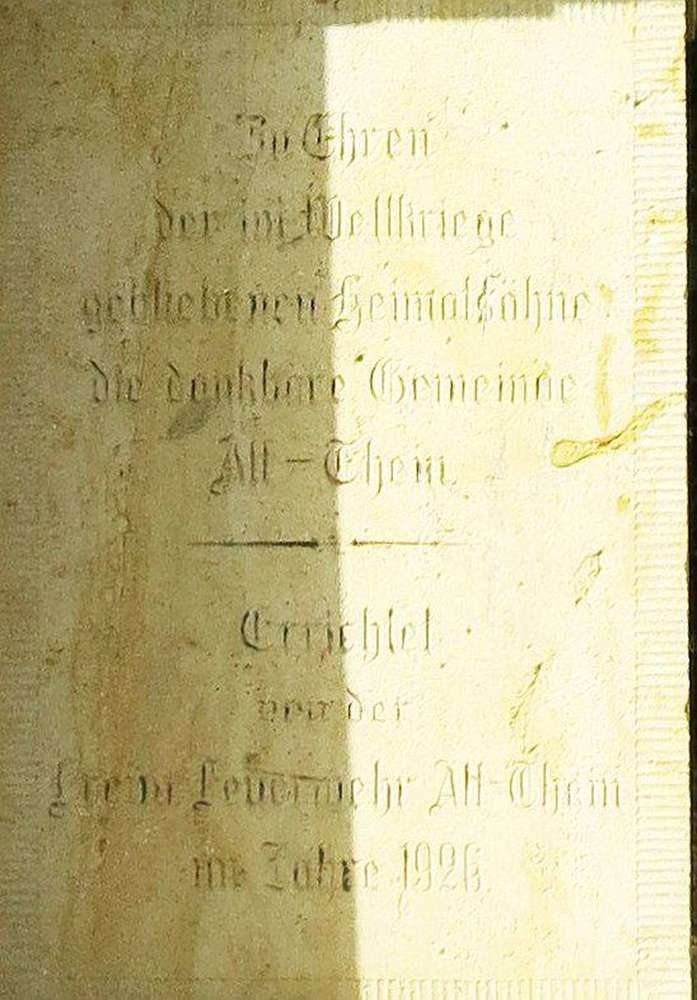 Zu Ehren
der im Weltkriege
gebliebenen Heimatsöhne
die dankbare Gemeinde
Alt-Thein.
Errichtet
von der
Freiw. Feuerwehr Alt-Thein
im Jahre 1926.